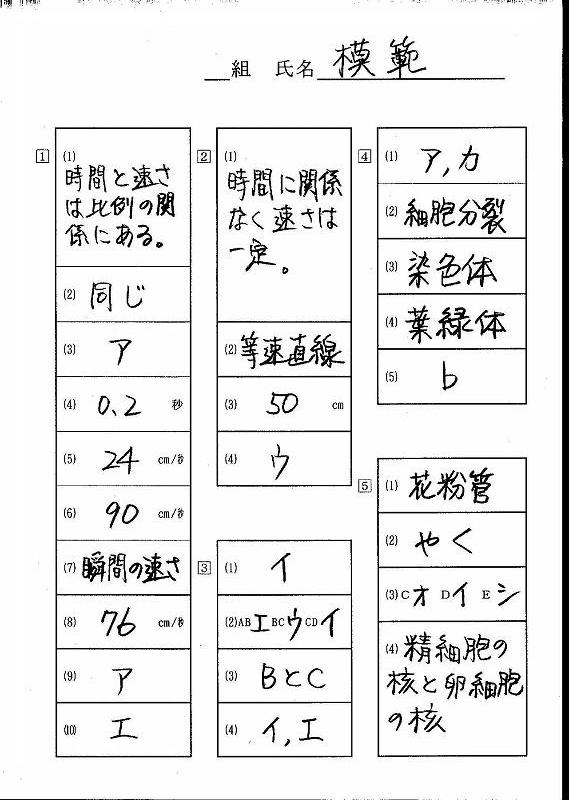 組 氏名 模範
1
(1) 時間と速さ
は比例の関
係にある。
(2) 同じ
(3) ア
(4) 0.2 秒
(5) 24 cm/秒
(6) 90 cm/秒
(7) 瞬間の速さ
(8) 76 cm/秒
(9) ア
(10) エ
2
(1) 時間に関係
なく速さは
一定。
(2) 等速直線
(3) 50 cm
(4) ウ
3
(1) イ
(2) AB エ BC ウ CD イ
(3) BとC
(4) イ,エ
4
(1) ア,カ
(2) 細胞分裂
(3) 染色体
(4) 葉緑体
(5) b
5
(1) 花粉管
(2) やく
(3) C オ D イ E シ
(4) 精細胞の
核と卵細胞
の核